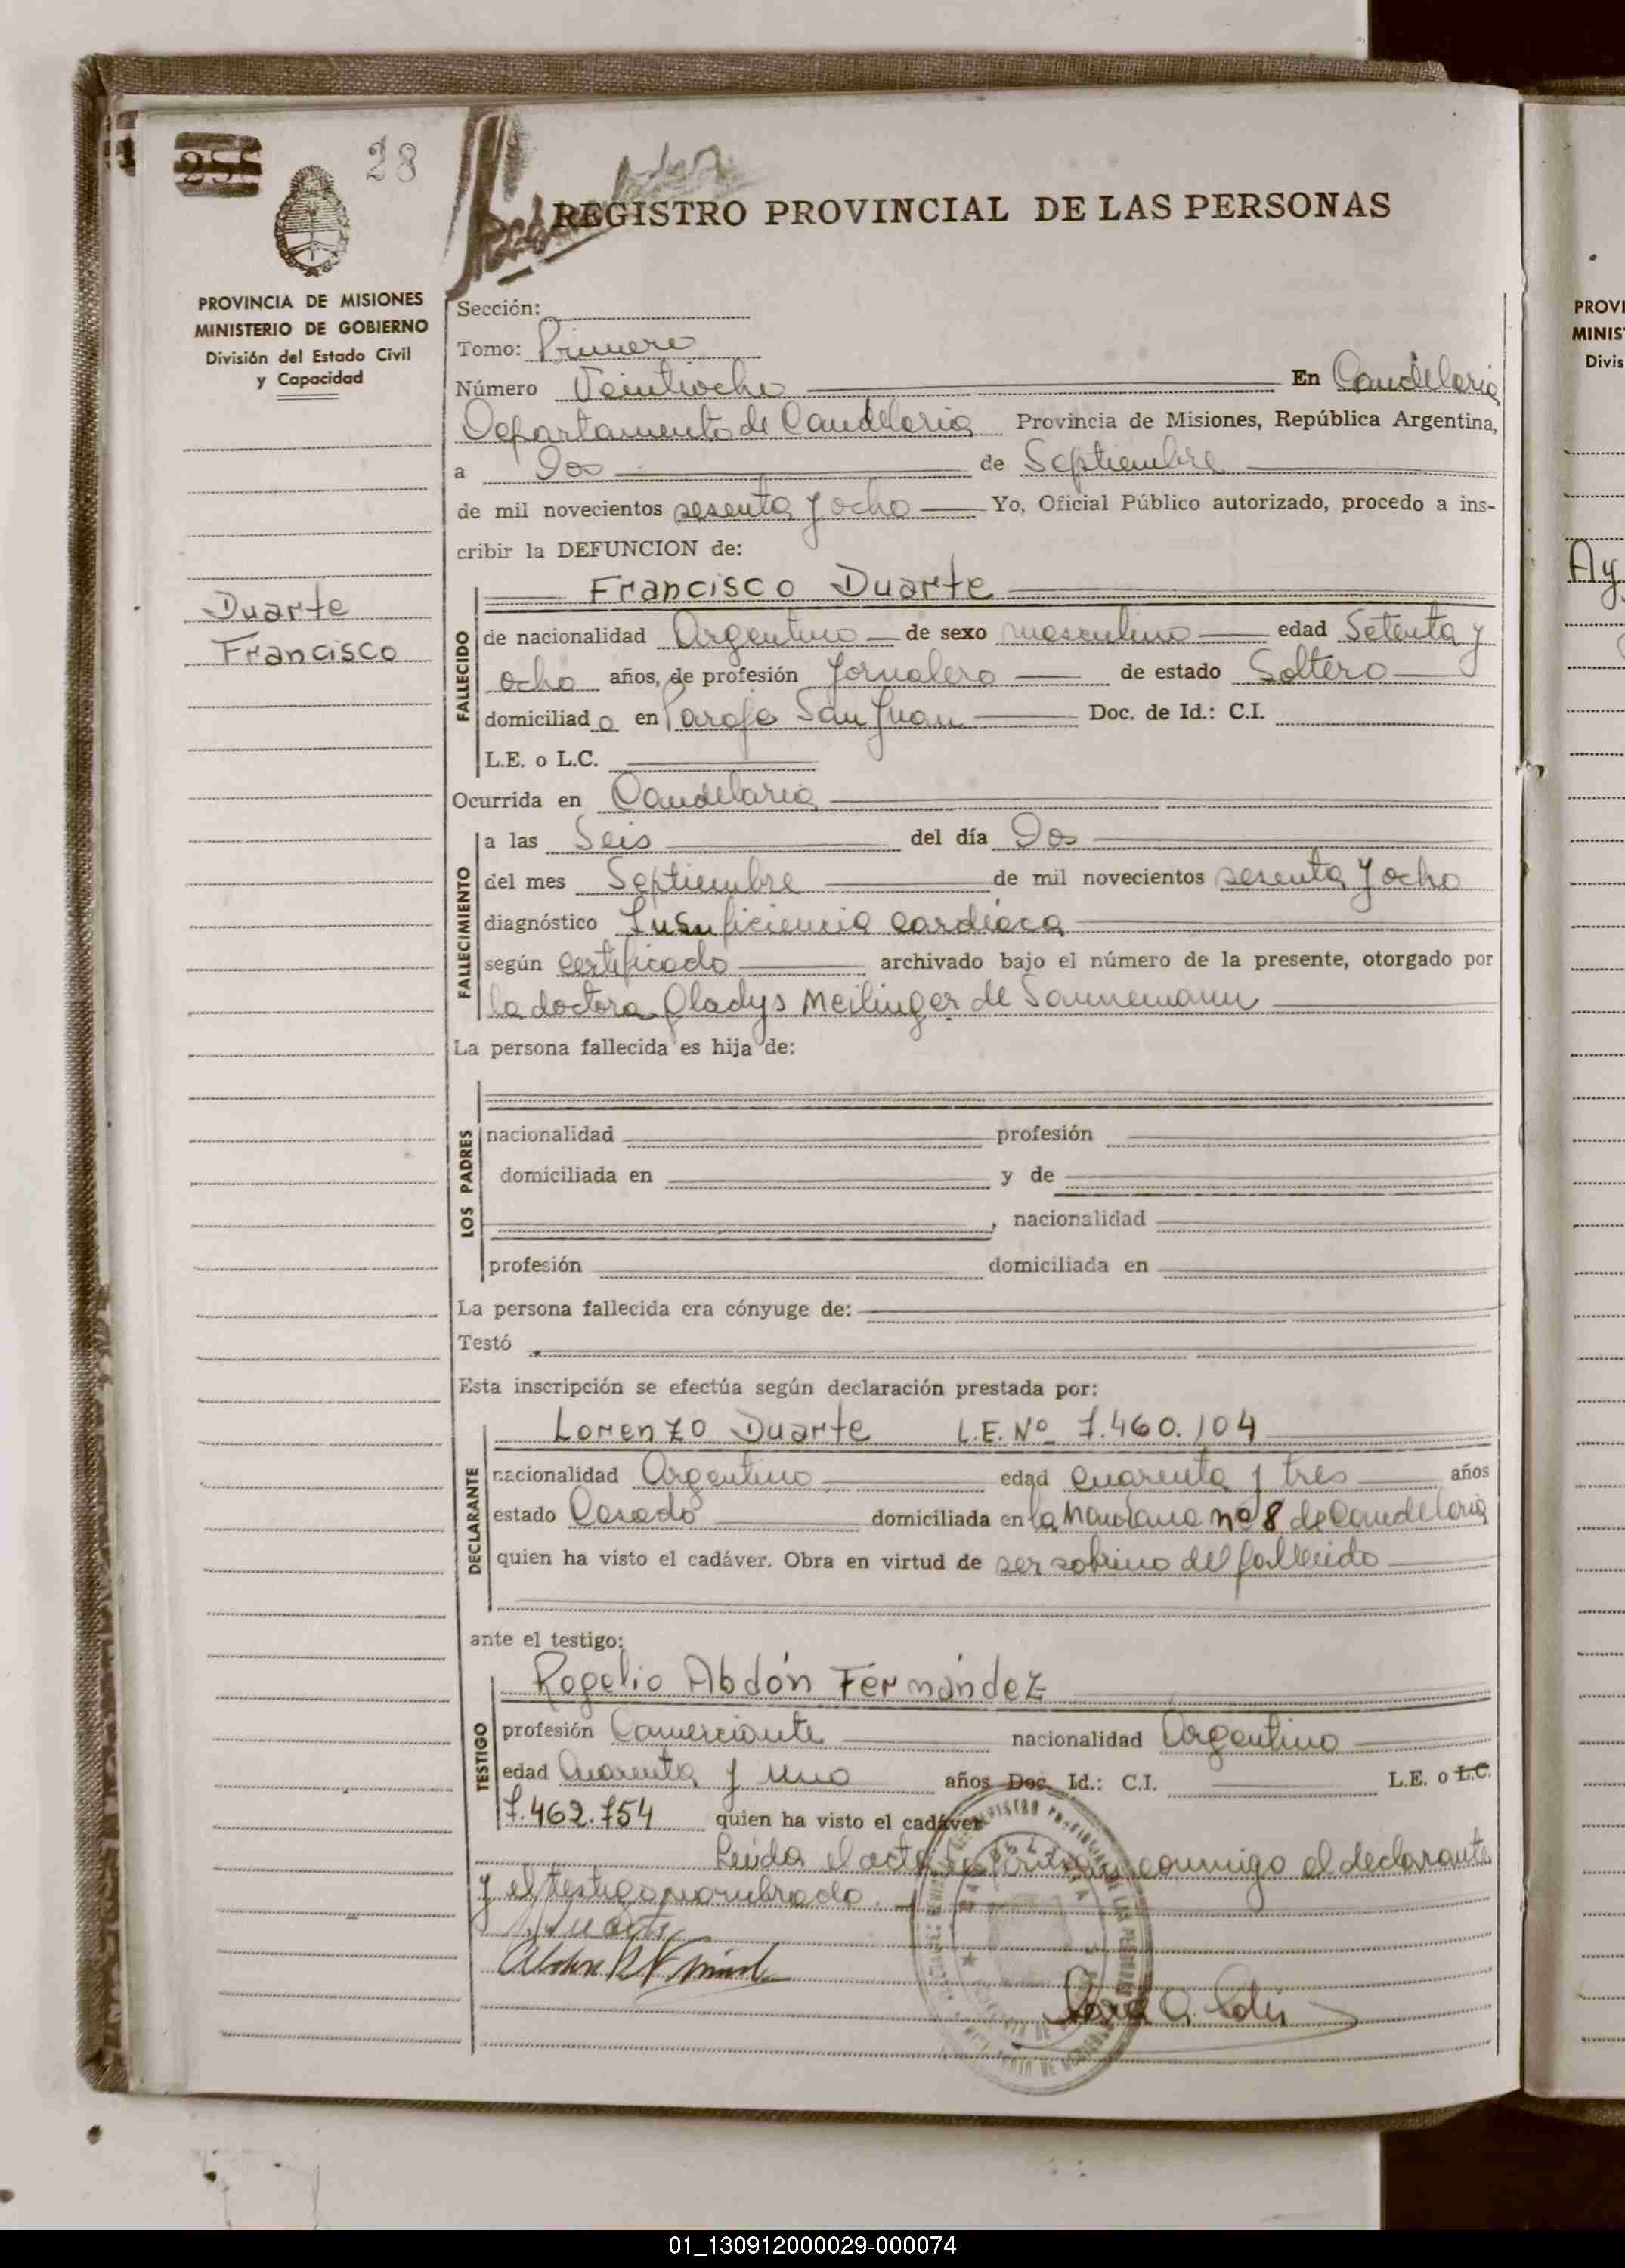 28
REGISTRO PROVINCIAL DE LAS PERSONAS
PROVINCIA DE MISIONES
MINISTERIO DE GOBIERNO
División del Estado Civil
y Capacidad
Duarte
Francisco
Sección:
Tomo: Primero
Número Veintiocho En Candelaria
Departamento de Candelaria Provincia de Misiones, República Argentina,
a Dos de Septiembre
de mil novecientos sesenta y ocho Yo, Oficial Público autorizado, procedo a ins-
cribir la DEFUNCION de:
FALLECIDO
Francisco Duarte
de nacionalidad Argentino de sexo masculino edad Setenta y
ocho años, de profesión Jornalero de estado Soltero
domiciliado en Paraje San Juan Doc. de Id.: C.I.
L.E. o L.C.
Ocurrida en Candelaria
FALLECIMIENTO
a las Seis del día Dos
del mes Septiembre de mil novecientos sesenta y ocho
diagnóstico Insuficiencia cardíaca
según certificado archivado bajo el número de la presente, otorgado por
la doctora Gladys Meilinger de Sannemann
La persona fallecida es hija de:
LOS PADRES
nacionalidad profesión
domiciliada en y de
, nacionalidad
profesión domiciliada en
La persona fallecida era cónyuge de:
Testó
Esta inscripción se efectúa según declaración prestada por:
DECLARANTE
Lorenzo Duarte L.E. Nº 7.460.104
nacionalidad Argentino edad cuarenta y tres años
estado Casado domiciliada en la Manzana nº 8 de Candelaria
quien ha visto el cadáver. Obra en virtud de ser sobrino del fallecido
ante el testigo:
TESTIGO
Rogelio Abdón Fernández
profesión Comerciante nacionalidad Argentino
edad Cuarenta y uno años Doc. Id.: C.I. L.E. o L.C.
7.462.754 quien ha visto el cadáver
Leída el acta conmigo el declarante
y el testigo nombrado.
PROVI
MINIS
Divis
Ay
01_130912000029-000074